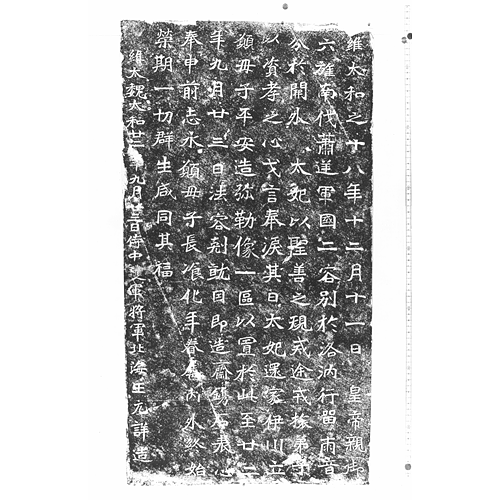 維太和之十八年十二月十一日皇帝親御
六旌南伐蕭逆軍國二容別於洛汭行留兩音
分於閞外太妃以聖善之規戒途戒旅弟子
以資孝之心戈言奉淚其日太妃還家伊川立
願母子平安造彌勒像一區以置於此至廿二
年九月廿三日法容剋就因即造齋鐫石表心
奉申前志永願母子長飡化年眷屬內外終始
榮期一切群生咸同其福
維大魏太和廿二年九月廿三日侍中護軍將軍北海王元詳造